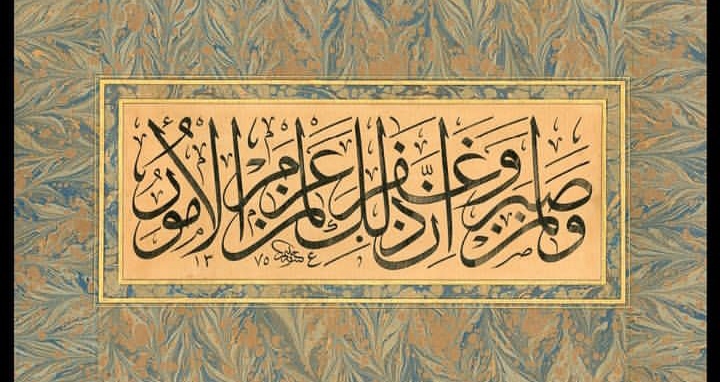 ولمن صبر وغفر إن ذلك لمن عزم الأمور
١٣ ٧٥